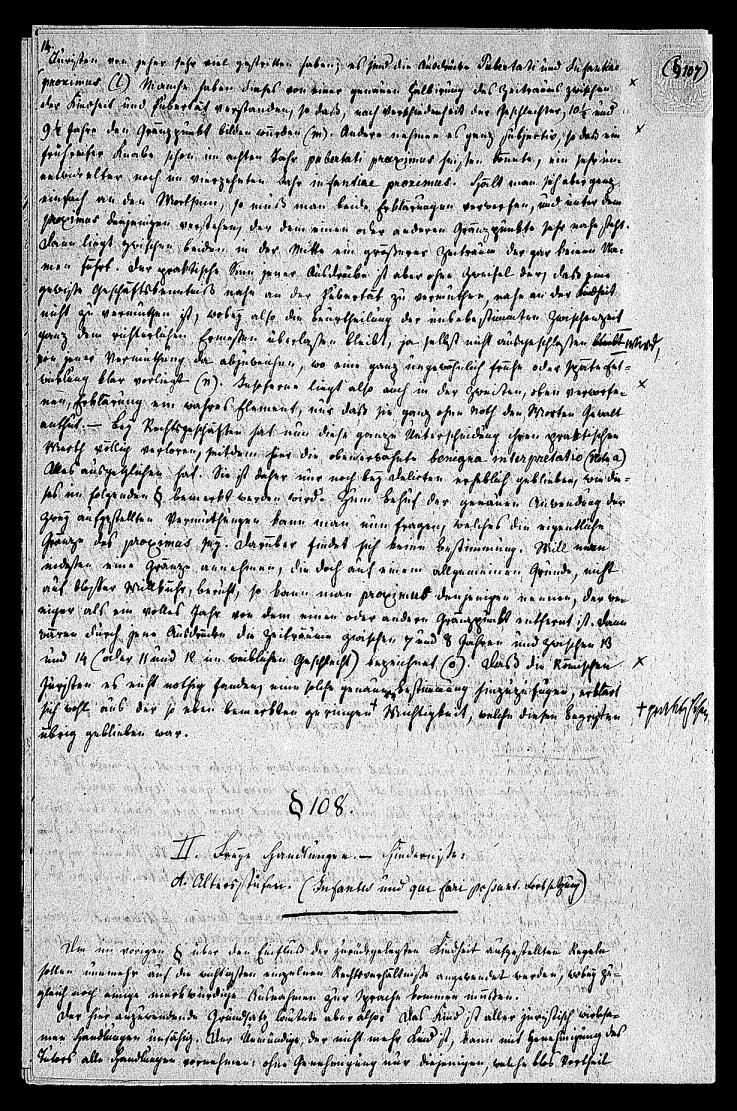 14.
(§107)
Juristen von jeher sehr viel gestritten haben; es sind die Ausdrücke Pubertati und Infantiae
proximus (l) Manche haben dieses von einer genauen Halbirung des Zeitraums zwischen
der Kindheit und Pubertät verstanden, so daß, nach Verschiedenheit der Geschlechter, 10½ und
9½ Jahre den Gränzpunkt bilden würden (m). Andere nehmen es ganz subjectiv, so daß ein
frühreifer Knabe schon im achten Jahr pubertati proximus heißen könnte, ein sehr un-
entwickelter noch im vierzehnten Jahr infantiae proximus. Hält man sich aber ganz
einfach an den Wortsinn, so muß man beide Erklärungen verwerfen, und unter dem
proximus denjenigen verstehen, der dem einen oder anderen Gränzpunkte sehr nahe steht.
Dann liegt zwischen beiden in der Mitte ein größerer Zeitraum der gar keinen Na-
men führt. Der praktische Sinn jener Ausdrücke ist aber ohne Zweifel der, daß eine
gewisse Geschäftskenntniß nahe an der Pubertät zu vermuthen, nahe an der Kindheit
nicht zu vermuthen ist, wobey also die Beurtheilung der unbestimmten Zwischenzeit
ganz dem richterlichen Ermessen überlassen bleibt, ja selbst nicht ausgeschlossen wird,
von jener Vermuthung da abzuweichen, wo eine ganz ungewöhnlich frühe oder späte Ent-
wicklung klar vorliegt (n). Insoferne liegt also auch in der zweiten, oben verworfe-
nen, Erklärung ein wahres Element, nur daß sie ganz ohne Noth den Worten Gewalt
anthut. — Bey Rechtsgeschäften hat nun diese ganze Unterscheidung ihren praktischen
Werth völlig verloren, seitdem hier die obenerwähnte benigna interpretatio (Note a)
Alles ausgeglichen hat. Sie ist daher nur noch bey Delicten erheblich geblieben, wie die-
ses im folgenden § bemerkt werden wird. Zum Behuf der genauen Anwendung der
zwey aufgestellten Vermuthungen kann man nun fragen, welches die eigentliche
Gränze des proximus sey. Darüber findet sich keine Bestimmung. Will man
indessen eine Gränze annehmen, die doch auf einem allgemeinen Grunde, nicht
auf bloßer Willkühr, beruht, so kann man proximus denjenigen nennen, der we-
niger als ein volles Jahr von dem einen oder andern Gränzpunkt entfernt ist. Dann
wären durch jene Ausdrücke die Zeiträume zwischen 7 und 8 Jahren und zwischen 13
und 14 (oder 11 und 12 im weiblichen Geschlecht) bezeichnet (o). Daß die Römischen
Juristen es nicht nöthig fanden, eine solche genaue Bestimmung hinzuzufügen, erklärt
sich wohl aus der so eben bemerkten geringen + Wichtigkeit, welche diesen Begriffen
+ praktischen
übrig geblieben war.
§108.
II. Freye Handlungen. — Hindernisse.
A. Altersstufen. (Infantes und qui fari possunt. Fortsetzung)
Die im vorigen § über den Einfluß der zurückgelegten Kindheit aufgestellten Regeln
sollen nunmehr auf die wichtigsten einzelnen Rechtsverhältnisse angewendet werden, wobey zu-
gleich noch einige merkwürdige Ausnahmen zur Sprache kommen müssen.
Der hier anzuwendende Grundsatz lautete aber also: Das Kind ist aller juristisch wirksa-
men Handlungen unfähig. Der Unmündige, der nicht mehr Kind ist, kann mit Genehmigung des
Tutors alle Handlungen vornehmen: ohne Genehmigung nur diejenigen, welche blos Vortheil